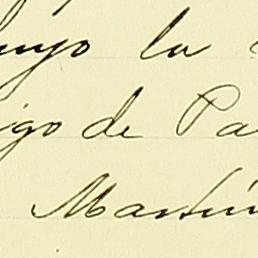 uyo la
igo de Pa
Martín